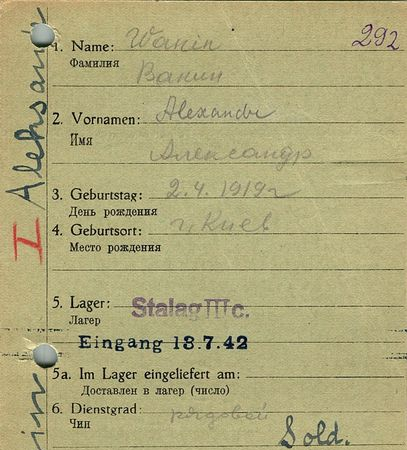 292
1. Name: Wanin
Фамилия Ванин
2. Vornamen: Alexander
Имя Александр
3. Geburtstag: 2.4.1919 г
День рождения
4. Geburtsort: г. Киев
Место рождения
5. Lager: Stalag III c.
Лагер
Eingang 18.7.42
5a. Im Lager eingeliefert am:
Доставлен в лагер (число)
6. Dienstgrad: рядовой
Чин Sold.
I